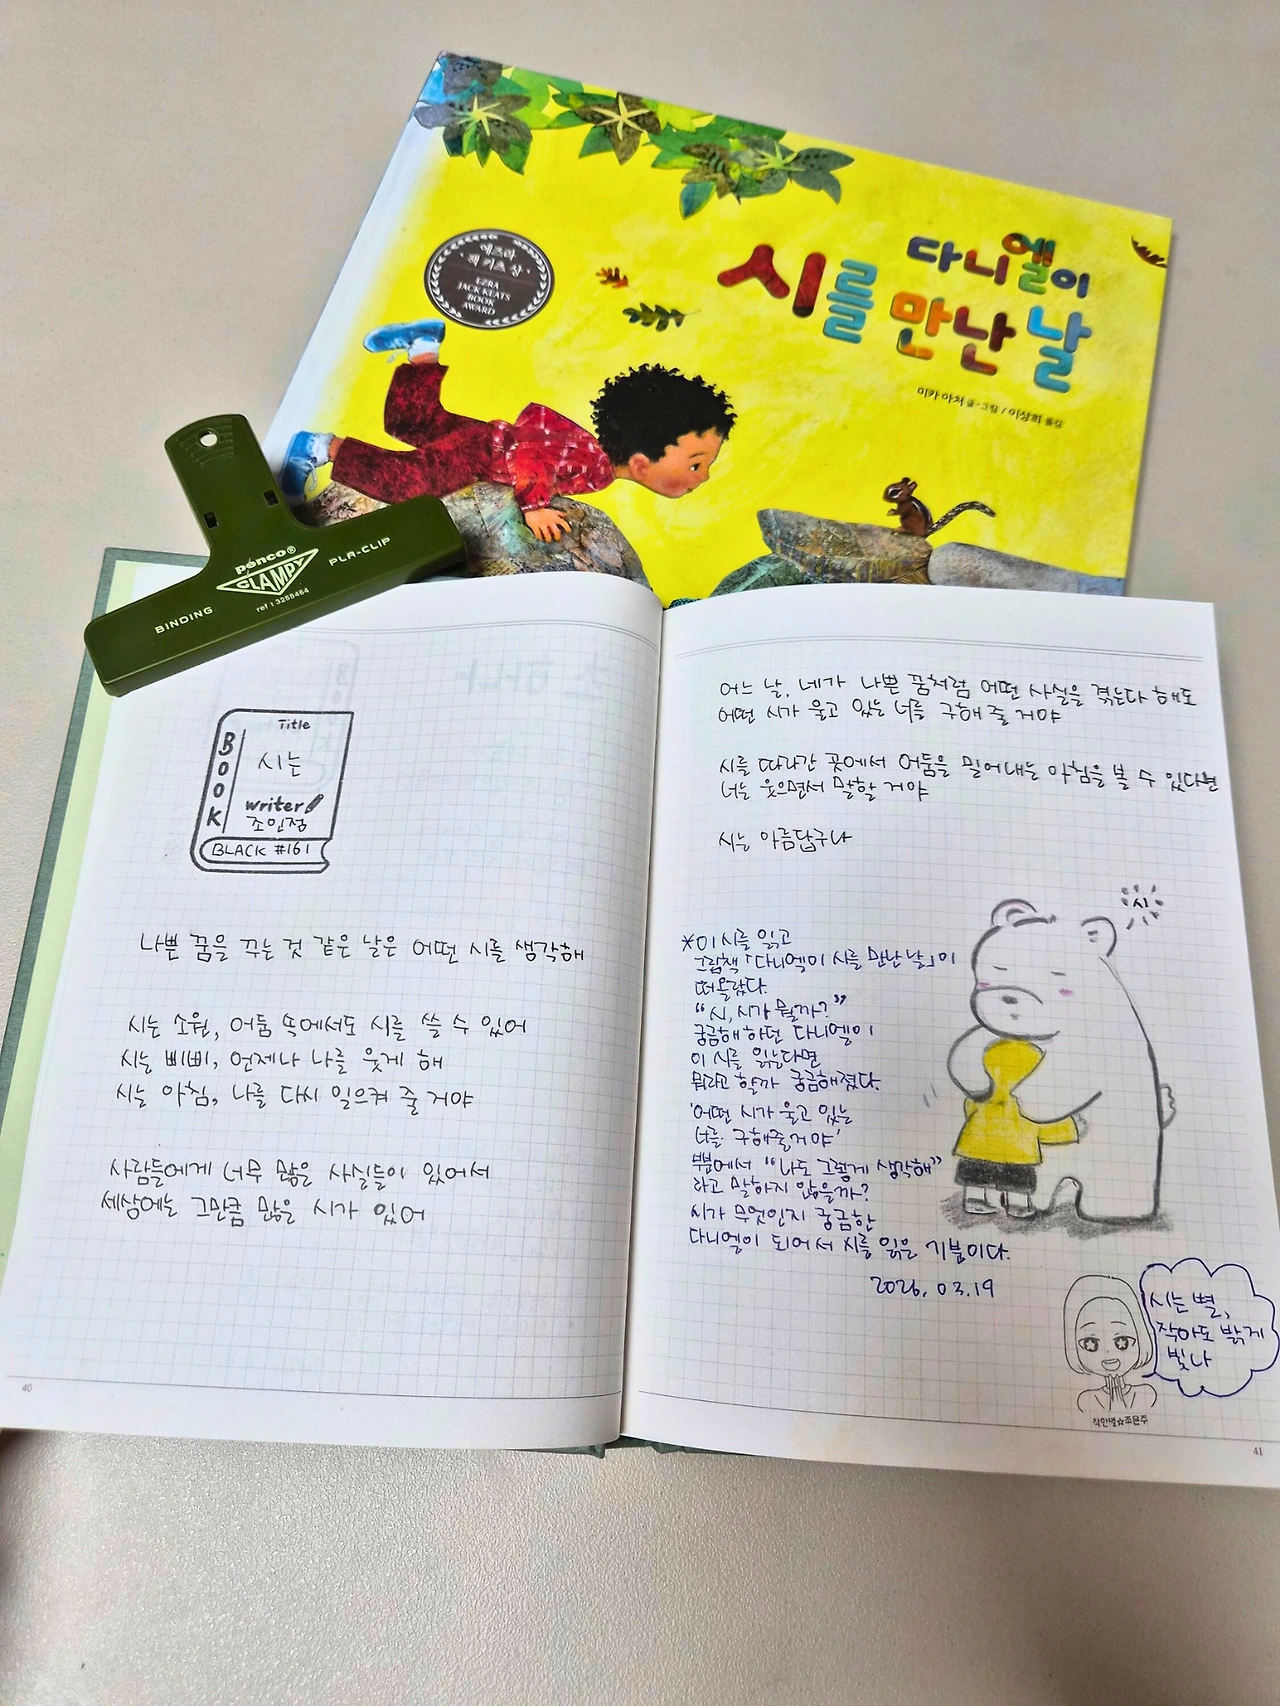 다니엘이
시를 만난 날
미카 아처 글·그림 / 이상희 옮김
에즈라
잭 키츠 상
EZRA
JACK KEATS
BOOK
AWARD
penco®
CLAMPY
PLA-CLIP
BINDING
ref : 3255464
Title
BOOK
시는
writer
조인정
BLACK #161
나쁜 꿈을 꾸는 것 같은 날은 어떤 시를 생각해
시는 소원, 어둠 속에서도 시를 쓸 수 있어
시는 삐삐, 언제나 나를 웃게 해
시는 아침, 나를 다시 일으켜 줄 거야
사람들에게 너무 많은 사실들이 있어서
세상에는 그만큼 많은 시가 있어
40
어느 날, 네가 나쁜 꿈처럼 어떤 사실을 겪는다 해도
어떤 시가 울고 있는 너를 구해 줄 거야
시를 따라간 곳에서 어둠을 밀어내는 아침을 볼 수 있다면
너는 웃으면서 말할 거야
시는 아름답구나
시
*이 시를 읽고
그림책 「다니엘이 시를 만난 날」이
떠올랐다.
"시, 시가 뭘까?"
궁금해하던 다니엘이
이 시를 읽는다면
뭐라고 할까 궁금해졌다.
'어떤 시가 울고 있는
너를 구해줄거야'
부분에서 "나도 그렇게 생각해"
라고 말하지 않을까?
시가 무엇인지 궁금한
다니엘이 되어서 시를 읽은 기분이다.
2026. 03. 19
시는 별,
작아도 밝게
빛나
41